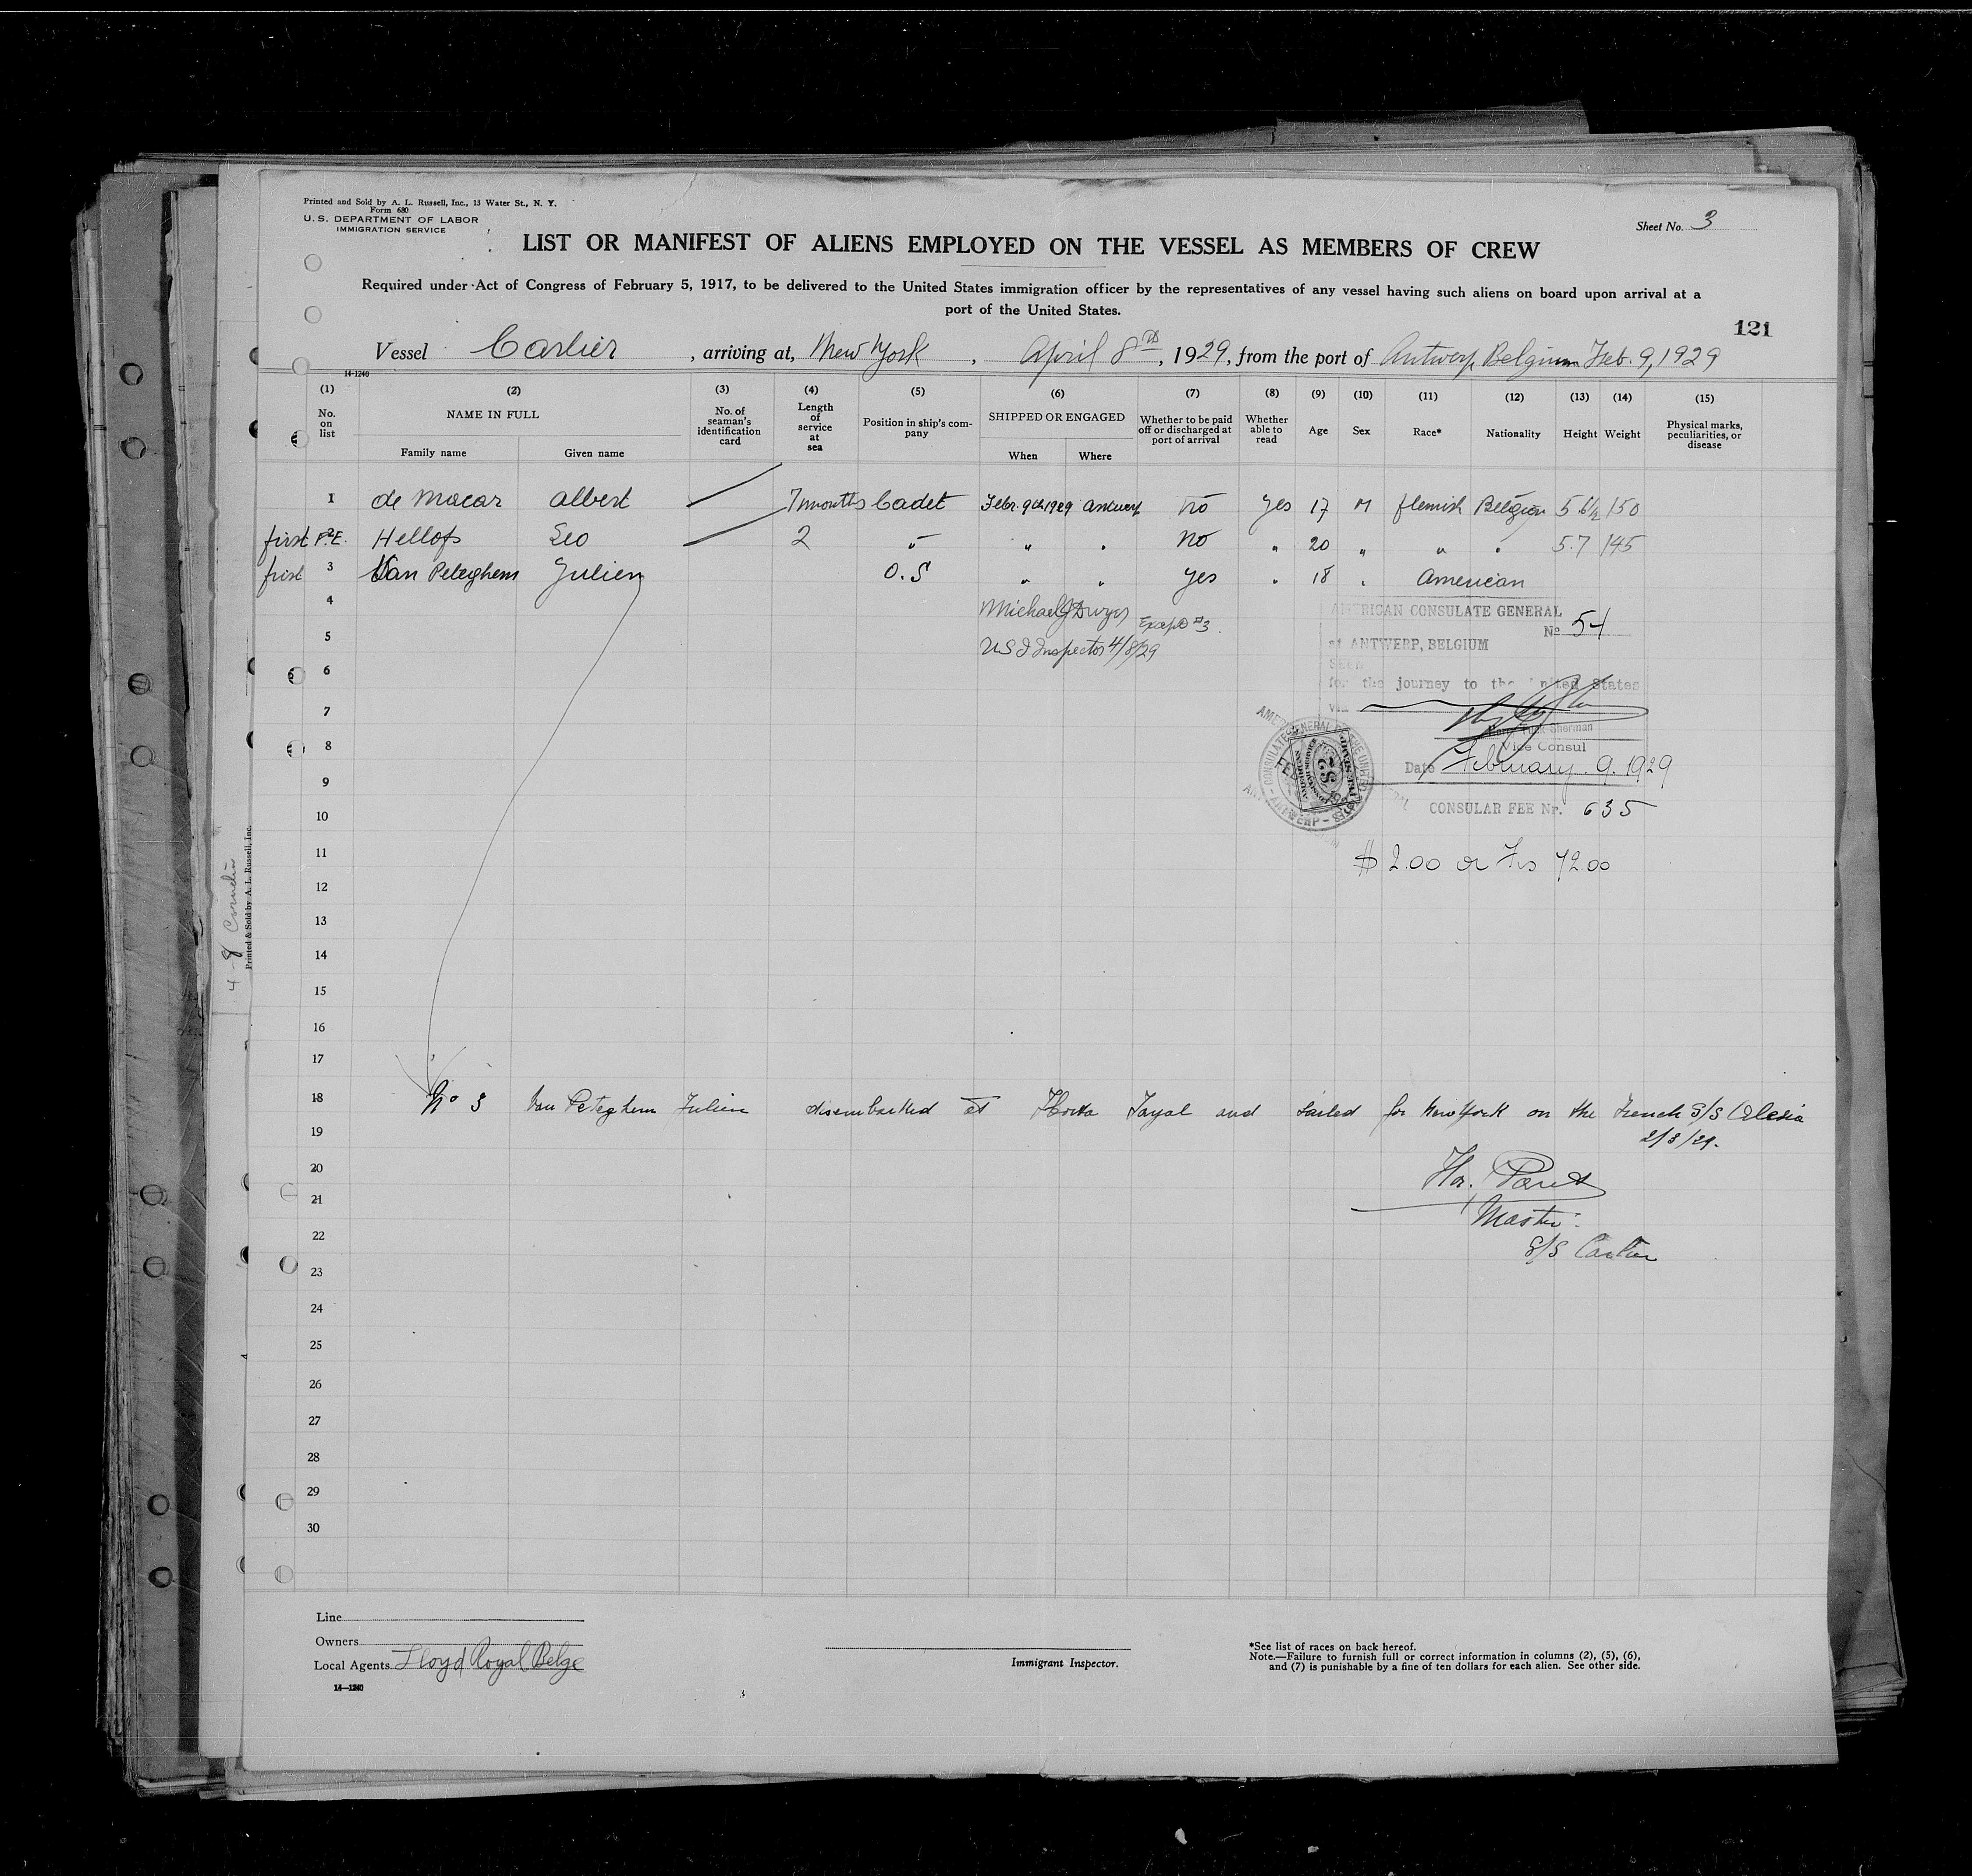 Printed and Sold by A. L. Russell, Inc., 13 Water St., N. Y.
Form 680
U. S. DEPARTMENT OF LABOR
IMMIGRATION SERVICE
Sheet No. 3
LIST OR MANIFEST OF ALIENS EMPLOYED ON THE VESSEL AS MEMBERS OF CREW
Required under Act of Congress of February 5, 1917, to be delivered to the United States immigration officer by the representatives of any vessel having such aliens on board upon arrival at a
port of the United States.
121
Vessel Carlier, arriving at, New York, April 8th, 1929, from the port of Antwerp Belgium Feb. 9, 1929
14-1240
(1) (2) (3) (4) (5) (6) (7) (8) (9) (10) (11) (12) (13) (14) (15)
No. on list NAME IN FULL No. of seaman's identification card Length of service at sea Position in ship's company SHIPPED OR ENGAGED Whether to be paid off or discharged at port of arrival Whether able to read Age Sex Race* Nationality Height Weight Physical marks, peculiarities, or disease
Family name Given name When Where
1 de Macar Albert 7 months Cadet Febr. 9th 1929 Antwerp no yes 17 M flemish Belgian 5 6½ 150
first P.E. 2 Hellofs Leo 2 " " " no " 20 " " " 5.7 145
first 3 Van Peteghem Julien O.S " " yes " 18 " American
4 Michael J Dwyer Except #3.
5 US I Inspector 4/8/29
AMERICAN CONSULATE GENERAL
No 54
at ANTWERP, BELGIUM
SEEN
for the journey to the United States
via
Vice Consul
Date February. 9. 1929
CONSULAR FEE Nr. 635
$ 2.00 or Frs 72.00
6
7
8
9
10
11
12
13
14
15
16
17
18 No 3 Van Peteghem Julien disembarked at Horta Fayal and sailed for New York on the French S/S Alesia
19 2/3/29.
20
Master
S/S Carlier
21
22
23
24
25
26
27
28
29
30
Printed & Sold by A. L. Russell, Inc.
Line
Owners
Local Agents Lloyd Royal Belge
14-1240
Immigrant Inspector.
*See list of races on back hereof.
Note.—Failure to furnish full or correct information in columns (2), (5), (6),
and (7) is punishable by a fine of ten dollars for each alien. See other side.